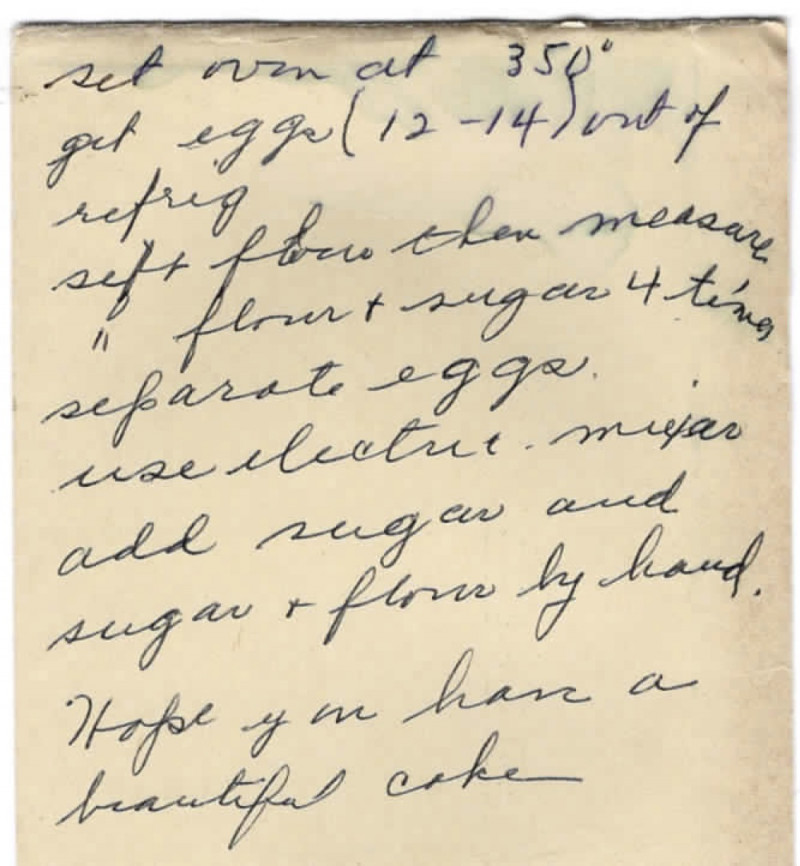 set oven at 350°
get eggs (12-14) out of
refrig
sift flour then measure
" flour + sugar 4 times
separate eggs.
use electric. mixer
add sugar and
sugar + flour by hand.
Hope you have a
beautiful cake